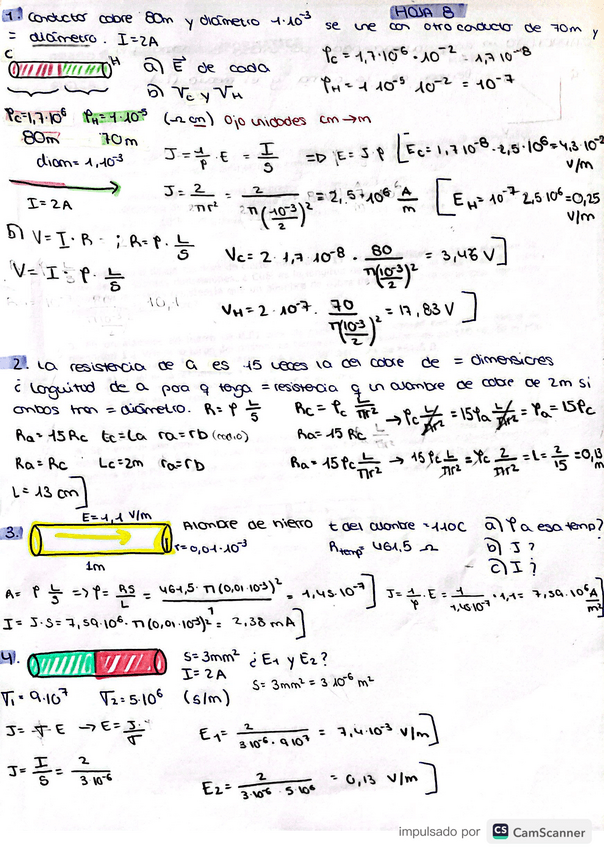 HOJA 8
1. Conductor cobre 80m y diámetro 1·10⁻³ se une con otro conducto de 70m y
= diámetro. I=2A
C H a) E⃗ de cada ρc=1,7·10⁻⁶·10⁻² = 1,7 10⁻⁸
b) Vc y VH ρH=1 10⁻⁵ 10⁻² = 10⁻⁷
ρc=1,7·10⁶ ρH=1·10⁻⁵ (Ω cm) Ojo unidades cm→m
80m 70m
diam=1,10⁻³
I=2A
J=1/ρ · E = I/S => E=J·ρ [Ec=1,7 10⁻⁸·2,5·10⁶=4,3·10⁻² V/m
J= 2/πr² = 2/π(10⁻³/2)² = 2,5·10⁶ A/m [EH=10⁻⁷ 2,5 10⁶=0,25 V/m
b) V=I·R ; R=ρ·L/S
V=I·ρ·L/S
Vc=2·1,7·10⁻⁸·80/π(10⁻³/2)² = 3,46 V]
VH=2·10⁻⁷·70/π(10⁻³/2)² = 17,83 V]
2. La resistencia de a es 15 veces la del cobre de = dimensiones
¿ Longuitud de a para q tenga = resistencia q un alambre de cobre de 2m si
ambos tren = diámetro. R=ρ L/S Rc=ρc L/πr² → ρc L/πr² = 15ρa L/πr² = ρa=15ρc
Ra=15Rc Lc=La ra=rb (radio) Ra=15 Rc
Ra=Rc Lc=2m ra=rb Ra=15ρc L/πr² → 15ρc L/πr² = ρc 2/πr² = L= 2/15 =0,13 m
L=13 cm]
3. E=1,1 V/m
r=0,01·10⁻³
1m
Alambre de hierro t del alambre=110C a) ρ a esa temp?
Rtemp= 461,5 Ω b) J?
c) I?
R= ρ L/S => ρ= RS/L = 461,5·π(0,01·10⁻³)²/1 = 1,45·10⁻⁷] J=1/ρ·E= 1/1,45·10⁻⁷·1,1= 7,59·10⁶ A/m²]
I=J·S=7,59·10⁶·π(0,01·10⁻³)² = 2,38 mA]
4. S=3mm² ¿E1 y E2?
I=2A S=3mm²=3·10⁻⁶ m²
σ1=9·10⁷ σ2=5·10⁶ (S/m)
J=σ·E → E=J/σ E1= 2/3·10⁻⁶·9·10⁷ = 7,4·10⁻³ V/m]
J= I/S = 2/3·10⁻⁶
E2= 2/3·10⁻⁶·5·10⁶ = 0,13 V/m]
impulsado por CS CamScanner